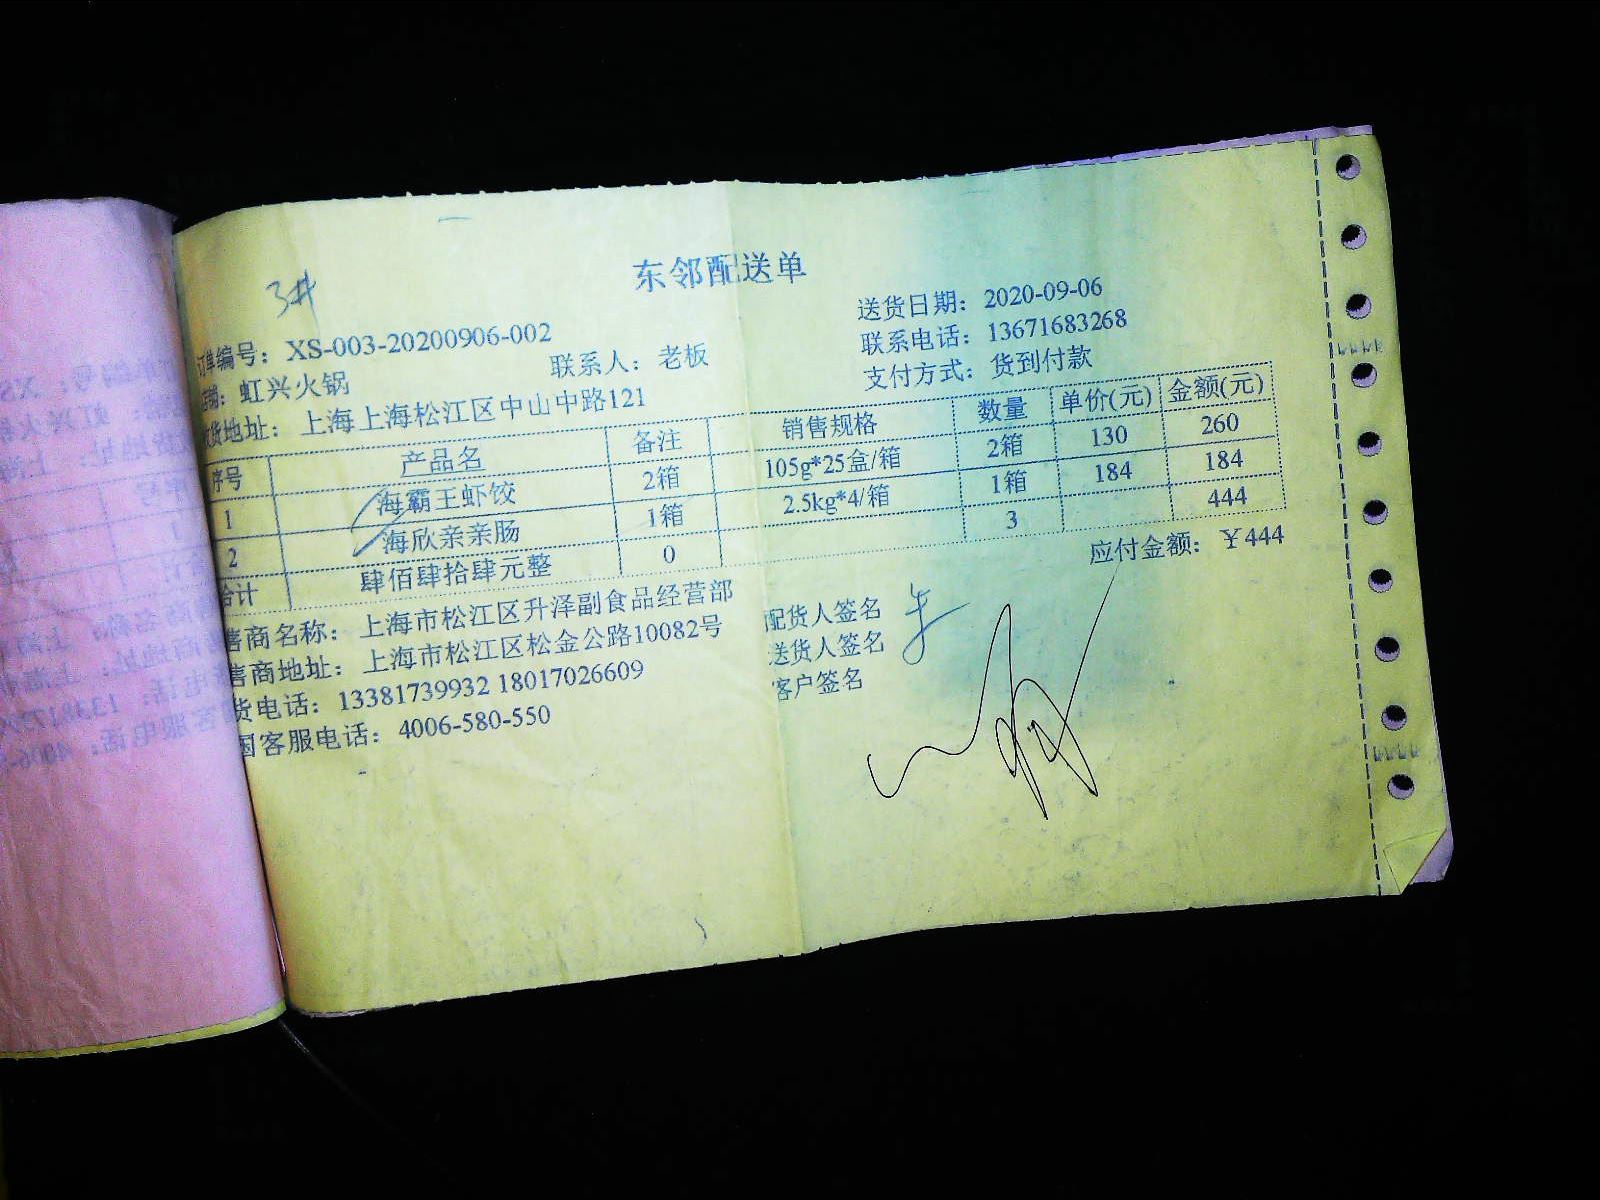 东邻配送单
3#
订单编号：XS-003-20200906-002
送货日期：2020-09-06
店铺：虹兴火锅 联系人：老板 联系电话：13671683268
收货地址：上海上海松江区中山中路121 支付方式：货到付款
序号 产品名 备注 销售规格 数量 单价(元) 金额(元)
1 海霸王虾饺 2箱 105g*25盒/箱 2箱 130 260
2 海欣亲亲肠 1箱 2.5kg*4/箱 1箱 184 184
合计 肆佰肆拾肆元整 0 3 444
应付金额：￥444
售商名称：上海市松江区升泽副食品经营部 配货人签名
售商地址：上海市松江区松金公路10082号 送货人签名
货电话：13381739932 18017026609 客户签名
国客服电话：4006-580-550